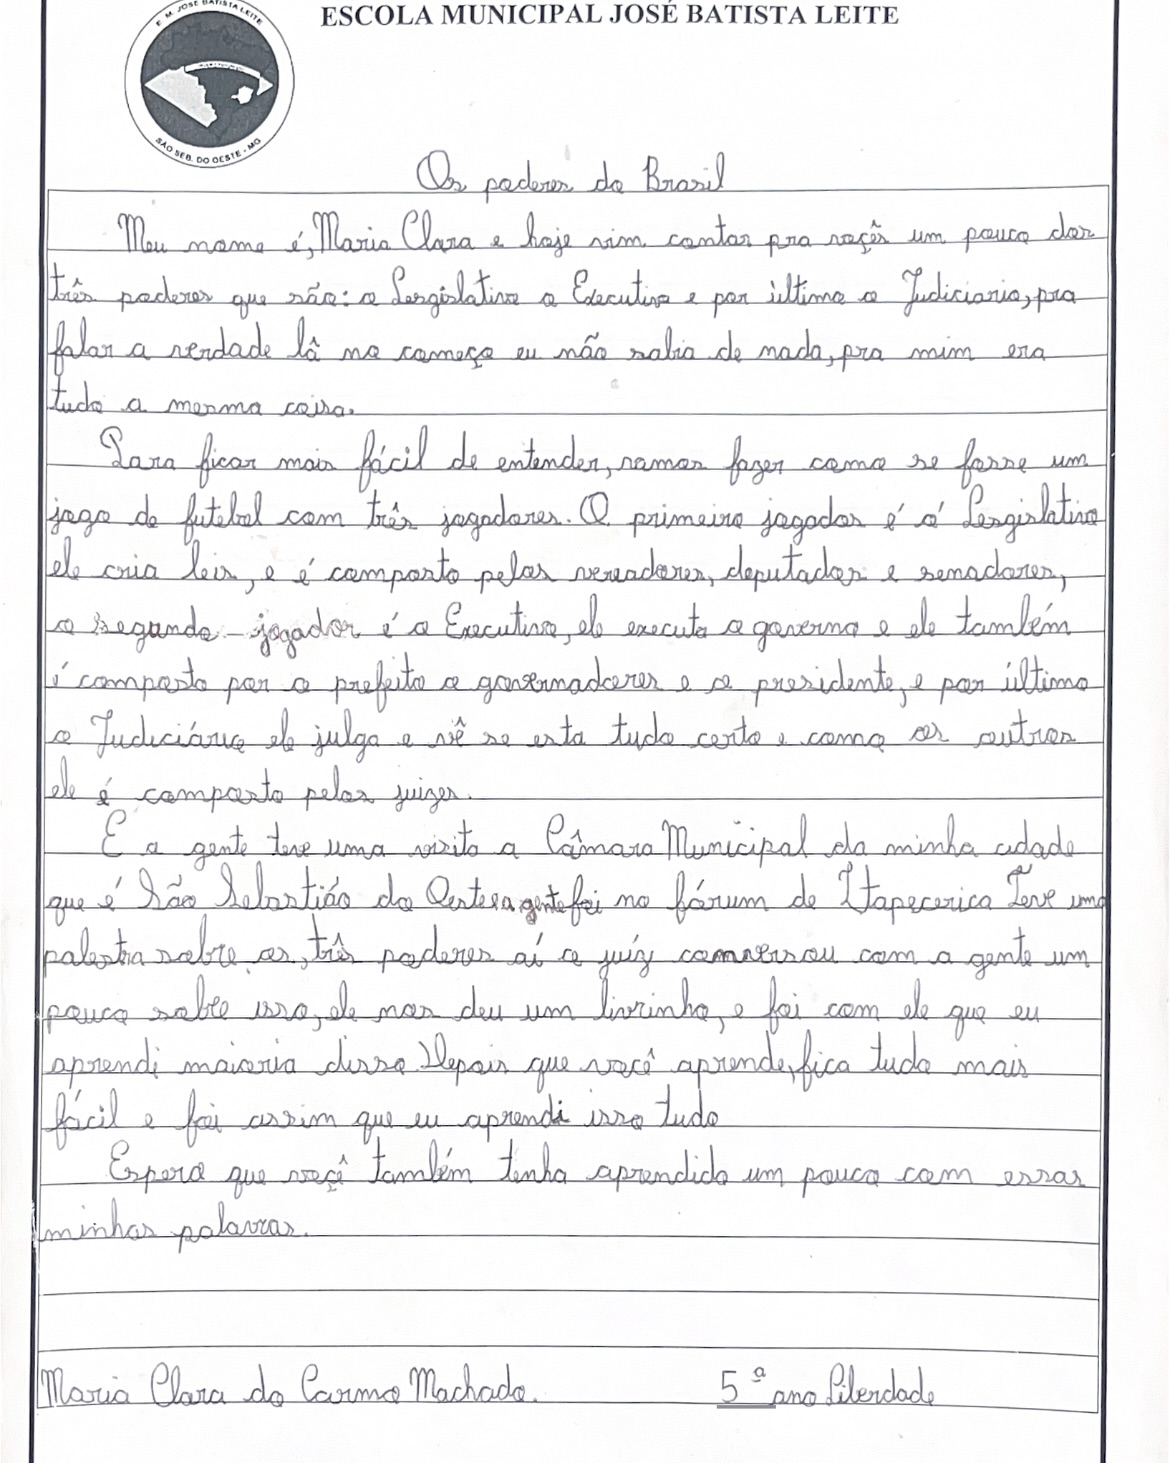 ESCOLA MUNICIPAL JOSÉ BATISTA LEITE
E. M. JOSÉ BATISTA LEITE
SÃO SEB. DO OESTE - MG
Os poderes do Brasil
Meu nome é, Maria Clara e hoje vim contar pra voçês um pouco dos
três poderes que são: o Lesgislativo o Executivo e por último o Judiciario, pra
falar a verdade lá no começo eu não sabia de nada, pra mim era
tudo a mesma coisa.
Para ficar mais fácil de entender, vamos fazer como se fosse um
jogo de futebol com três jogadores. O primeiro jogador é o Lesgislativo
ele cria leis, e é composto pelos vereadores, deputados e senadores,
o segundo jogador é o Executivo, ele executa o governo e ele também
é composto por o prefeito o governadores e o presidente, e por último
o Judiciário ele julga e vê se esta tudo certo e como os outros
ele é composto pelos juizes.
E a gente teve uma visita a Câmara Municipal da minha cidade
que é São Sebastião do Oeste a gente foi no fórum de Itapecerica Teve uma
palestra sobre os, três poderes aí o juíz conversou com a gente um
pouco sobre isso, ele nos deu um livrinho, e foi com ele que eu
aprendi maioria disso Depois que você aprende, fica tudo mais
fácil e foi assim que eu aprendi isso tudo
Espero que voçê também tenha aprendido um pouco com essas
minhas palavras.
Maria Clara do Carmo Machado. 5º ano Liberdade